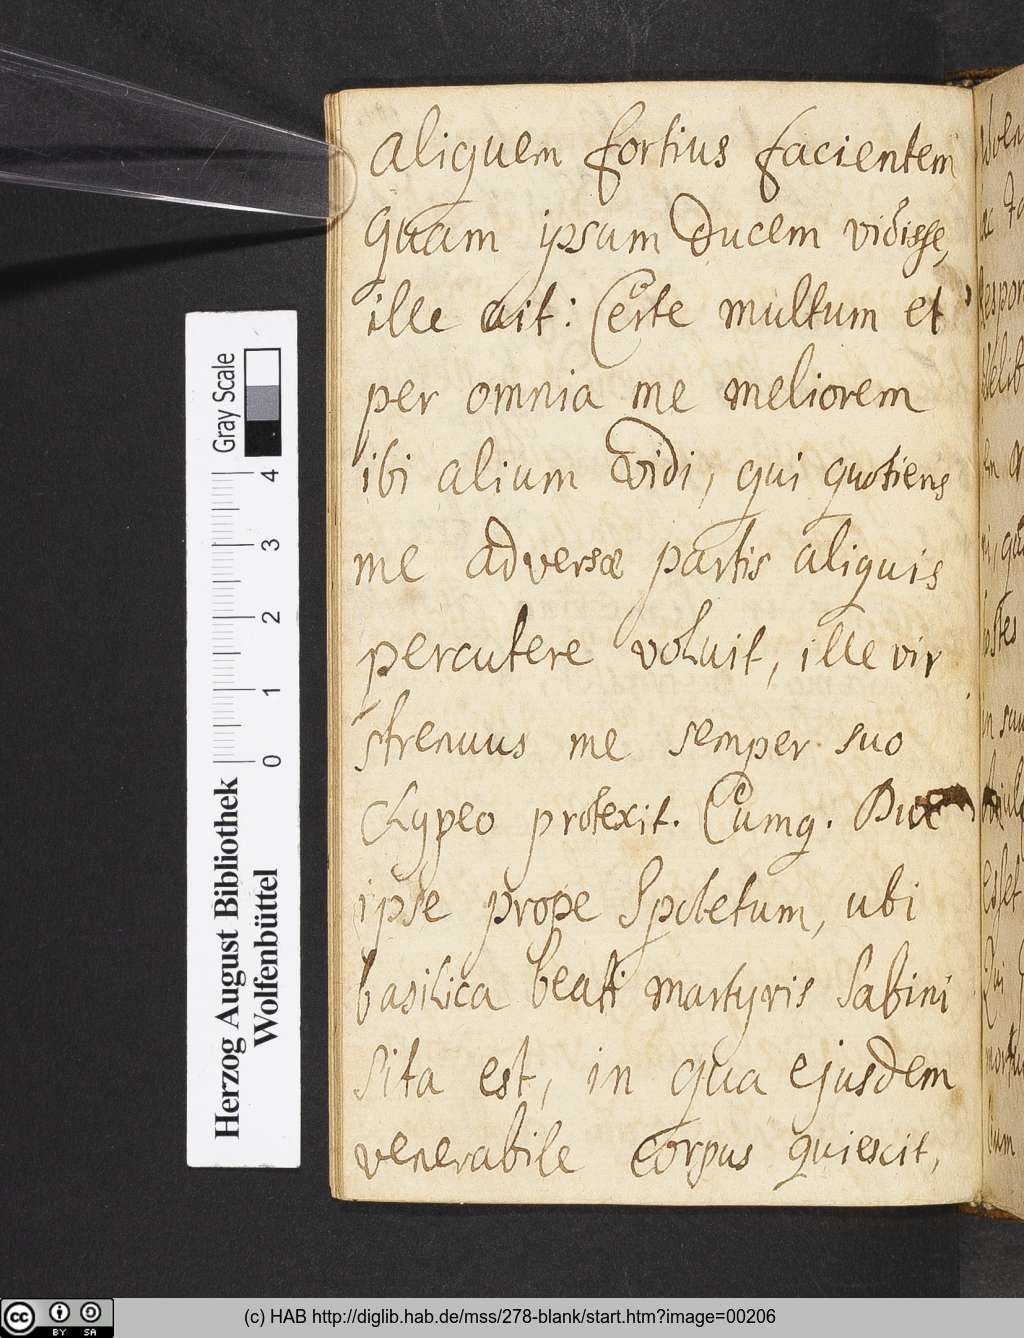 aliquem fortius facientem
quam ipsum Ducem vidisse,
ille ait: Certe multum et
per omnia me meliorem
ibi alium vidi, qui quotiens
me adversæ partis aliquis
percutere voluit, ille vir
strenuus me semper suo
clypeo protexit. Cumq. Dux
ipse prope Spoletum, ubi
basilica beati martyris Sabini
sita est, in qua ejusdem
venerabile corpus quiescit,
Herzog August Bibliothek
Wolfenbüttel
Gray Scale
0 1 2 3 4
cc BY SA
(c) HAB http://diglib.hab.de/mss/278-blank/start.htm?image=00206